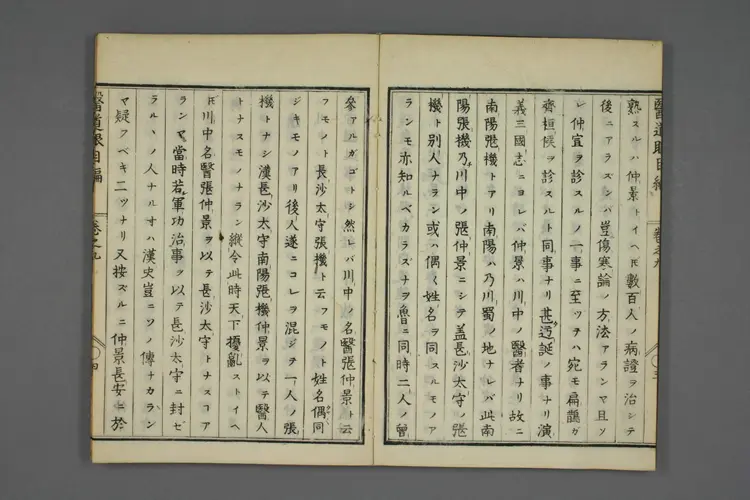 熟スルハ仲景トイヘ𪜈數百人ノ病證ヲ治シテ
後ニアラズンバ豈傷寒論ノ方法アランヤ且ソ
レ仲宣ヲ診スルノ一事ニ至ツテハ宛モ扁鵲ガ
齊桓侯ヲ診スルト同事ナリ甚迂誕ノ事ナリ演
義三國志ニヨレバ仲景ハ川中ノ醫者ナリ故ニ
南陽張機トアリ南陽ハ乃川蜀ノ地ナレバ此南
陽張機乃川中ノ張仲景ニシテ盖長沙太守ノ張
機ト別人ナラン或ハ偶〻姓名ヲ同スルモノア
ランモ亦知ルベカラズナヲ魯ニ同時二人ノ曾
醫道眼目編 卷之九
參アルガゴトシ然レバ川中ノ名醫張仲景ト云
フモノト長沙太守張機ト云フモノト姓名偶同
ジキモノアリ後人遂ニコレヲ混ジテ一人ノ張
機トナシ漢長沙太守南陽張機仲景ヲ以テ醫人
トナスモノナラン縱令此時天下擾亂ストイヘ
𪜈川中名醫張仲景ヲ以テ長沙太守トナスコア
ランヤ當時若軍功治事ヲ以テ長沙太守ニ封ゼ
ラルヽノ人ナルオハ漢史豈ニソノ傳ナカラン
ヤ疑フベキ二ツナリ又按ズルニ仲景長安ニ於
醫道眼目編 卷之九 四